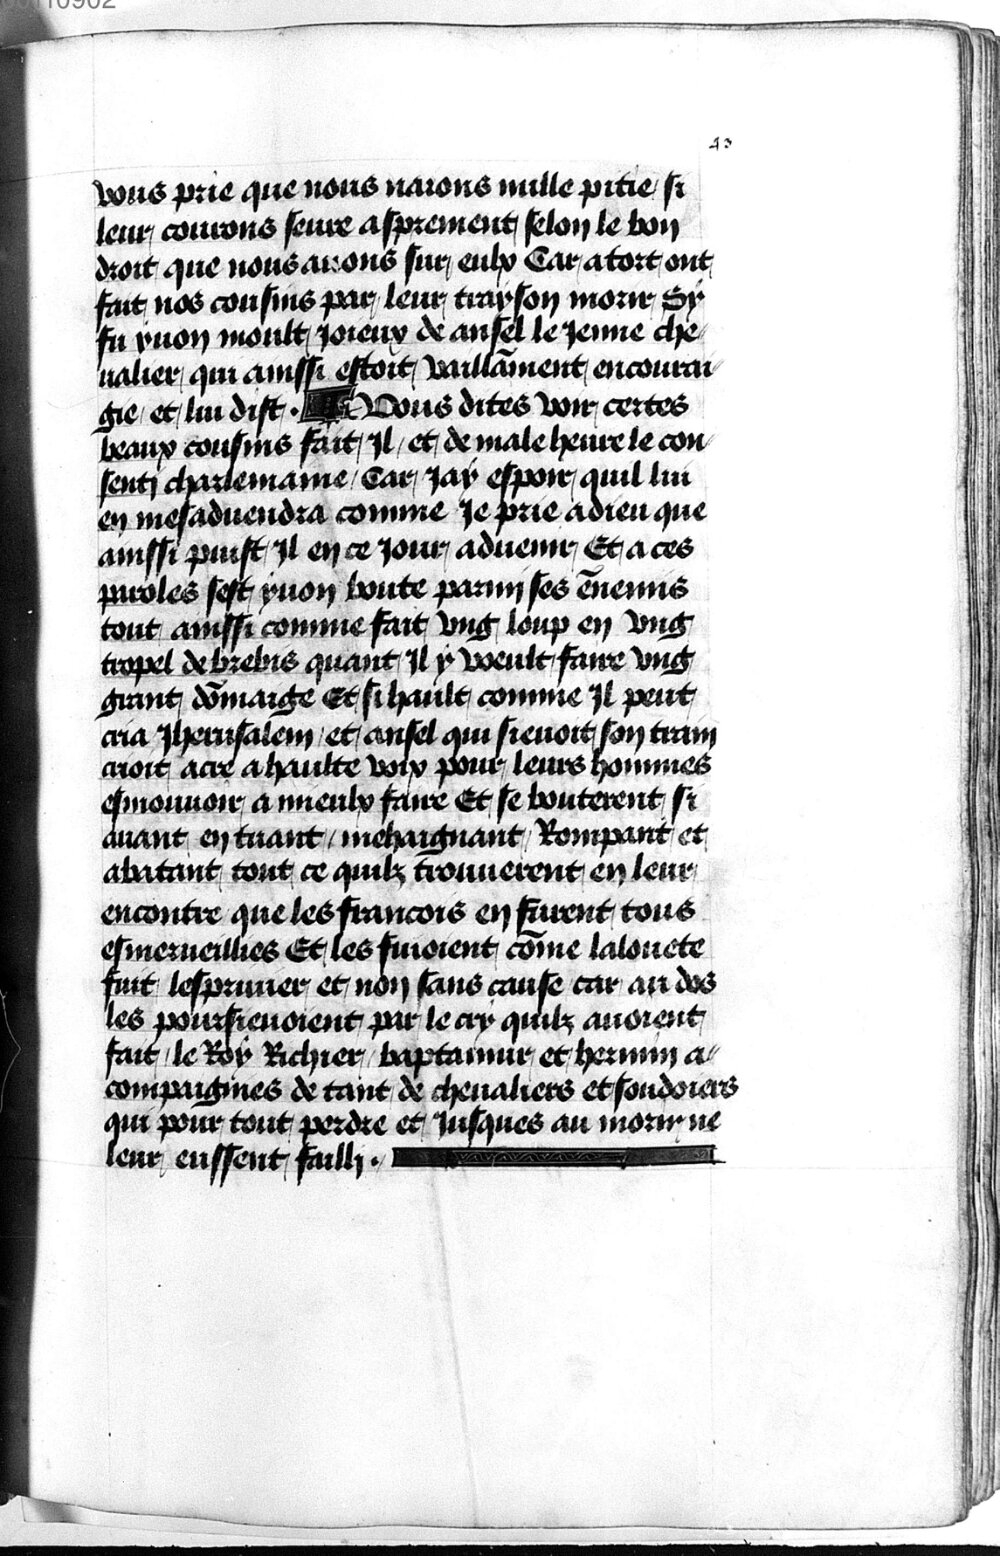 43
vous prie que nous naions nulle pitie si
leur courons seure asprement selon le bon
droit que nous auons sur eulx Car a tort ont
fait nos cousins par leur trayson morir Sy
fu yuon moult Joieux de ansel le Jenne che
ualier qui ainssi estoit vaillāment encourai
gie et lui dist . Vous dites voir certes
beaux cousins fait Il et de male heure le con
senti charlemaine Car Jay espoir quil lui
en mesaduendra comme Je prie a dieu que
ainssi puist Il en ce Jour aduenir Et a ces
paroles sest yuon boute parmi ses ēnemis
tout ainssi comme fait vng loup en vng
tropel de brebis quant Il y voeult faire vng
grant dōmaige Et si hault comme Il peut
cria Jherusalem et ansel qui sieuoit son train
crioit acre a haulte voix pour leurs hommes
esmouuoir a mieulx faire Et se bouterent si
auant en tuant mehaignant Rompant et
abatant tout ce quilz trouuerent en leur
encontre que les francois en furent tous
esmerueillies Et les fuioient cōme lalouete
fuit lespriuier et non sans cause car au dos
les poursieuoient par le cry quilz auoient
fait le Roy Richier baptamur et hermin a
compaignies de tant de cheualiers et soudoiers
qui pour tout perdre et Jusques au morir ne
leur eussent failli .